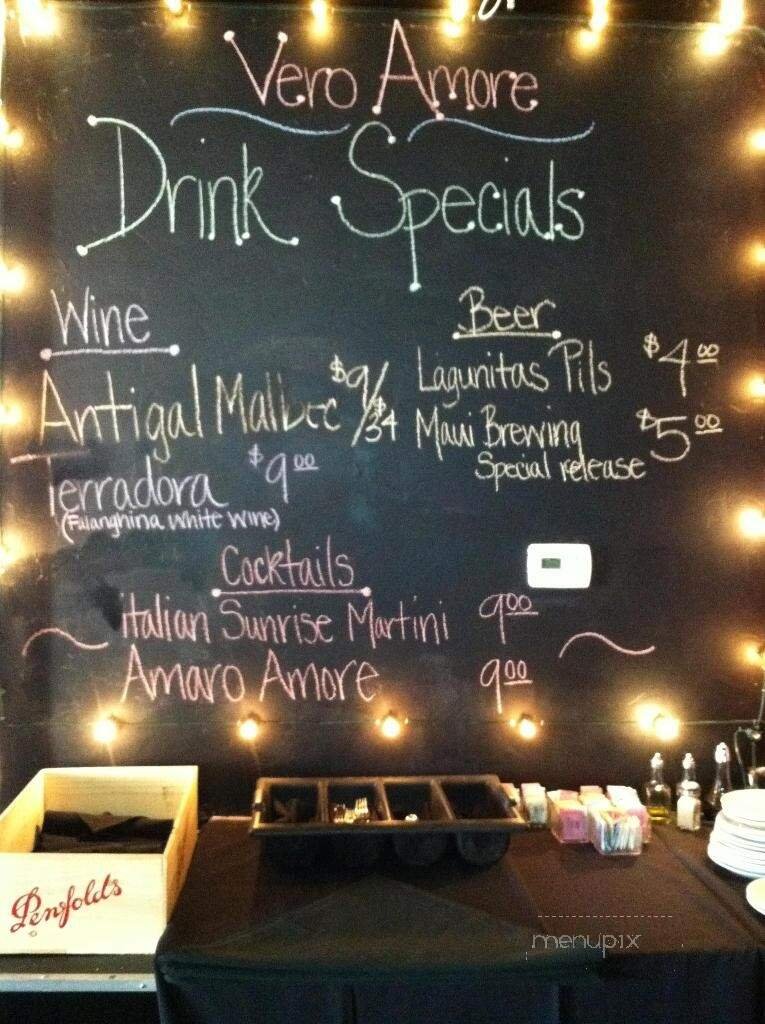 Vero Amore
Drink Specials
Wine
Antigal Malbec $9/$34
Terradora $9.00
(Falanghina white wine)
Beer
Lagunitas Pils $4.00
Maui Brewing $5.00
Special release
Cocktails
italian Sunrise Martini 9.00
Amaro Amore 9.00
Penfolds
menupix